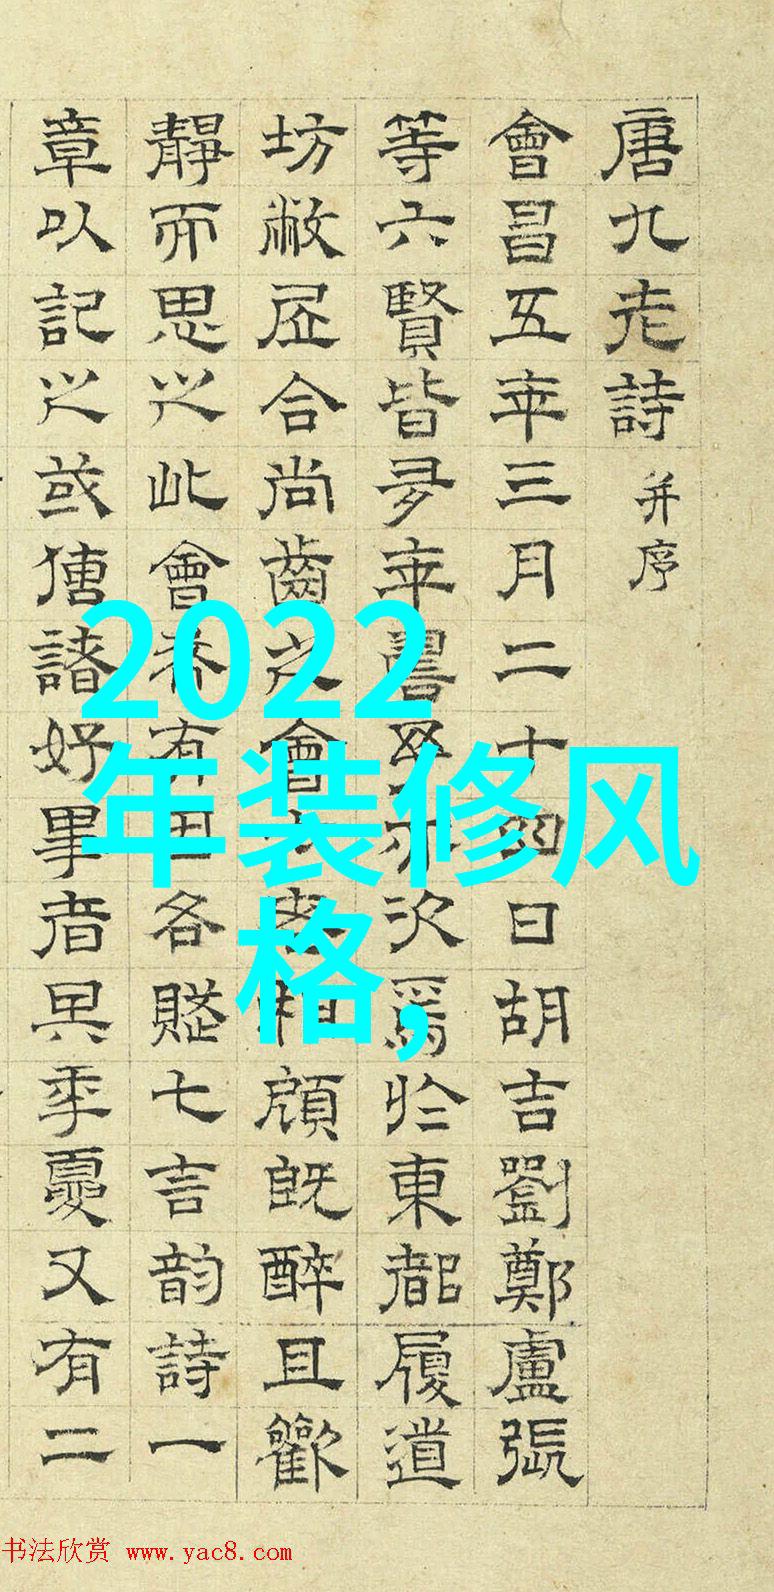 唐九老詩 并序
會昌五年三月二十四日胡吉劉鄭盧張
等六賢皆多年壽予亦次焉於東都履道
坊敝居合尚齒之會七老相顧既醉且歡
靜而思之此會希有因各賦七言韵詩一
章以記之或傳諸好事者其年夏又有二
2022
年装修风
格,
书法欣赏 www.yac8.com